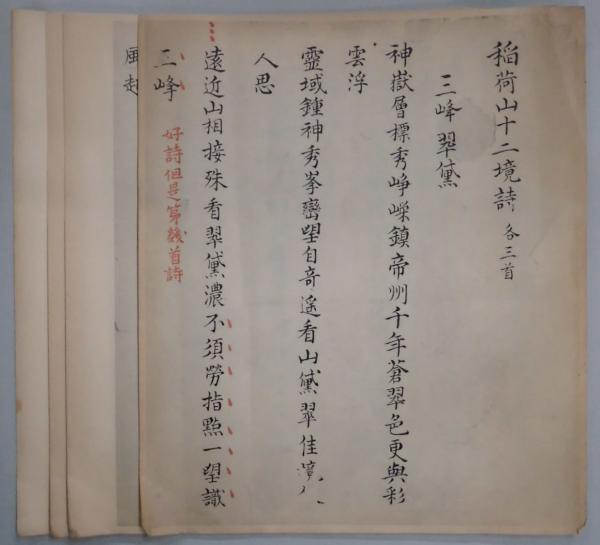 稲荷山十二境詩 各三首
三峰翠黛
神嶽層標秀崢嶸鎮帝州千年蒼翠色更與彩
雲浮
靈域鍾神秀峯巒望自奇遙看山黛翠佳
人思
遠近山相接殊看翠黛濃不須勞指點一望識
三峰 好詩但是第幾首詩
風起